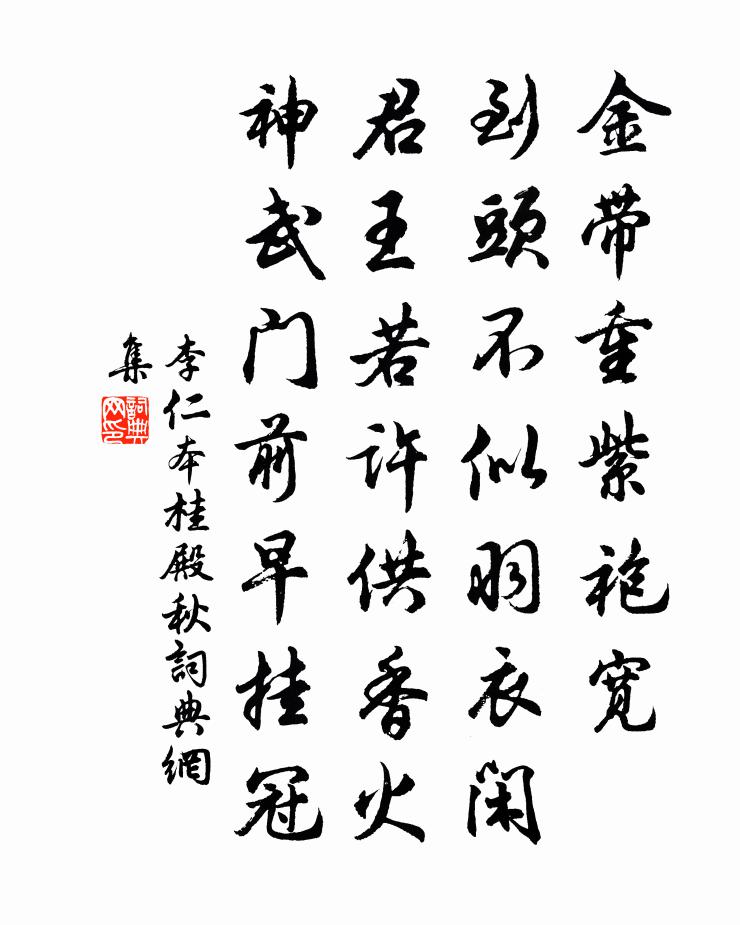 金带重紫袍宽
到頭不似羽衣闲
君王若许供香火
神武门前早挂冠
李仁本桂殿秋詞典網
集
詞典網印